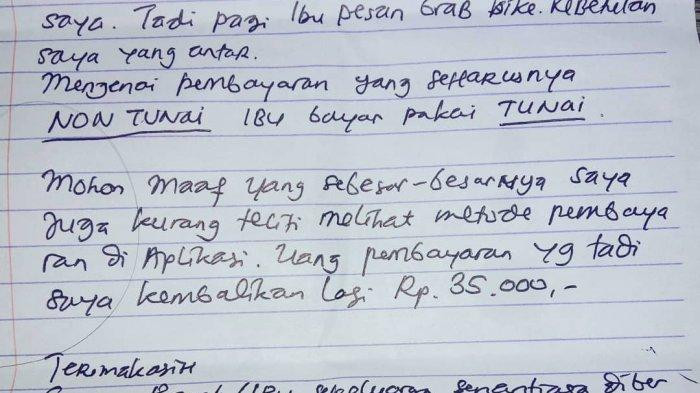 saya. Tadi pagi Ibu pesan Grab Bike. Kebetulan
saya yang antar.
Mengenai pembayaran yang seharusnya
NON TUNAI IBU bayar pakai TUNAI.
Mohon maaf yang sebesar-besarnya saya
Juga kurang teliti melihat metode pembaya
ran di Aplikasi. Uang pembayaran yg tadi
saya kembalikan lagi Rp. 35.000,-
Terimakasih
Ibu sekeluarga senantiasa diber